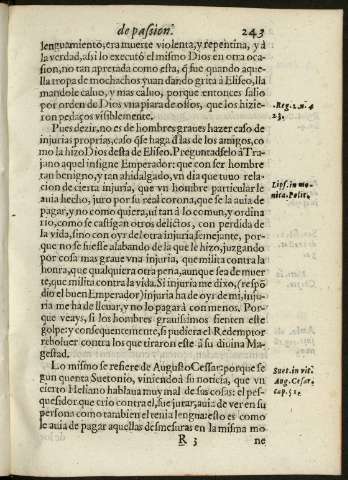 de passion. 243
lenguamiento; era muerte violenta, y repentina, y à
la verdad, assi lo executò el mismo Dios en otra oca
sion, no tan apretada como esta, q̃ fue quando aque-
lla tropa de mochachos yuan dando grita à Eliseo, lla
mandole caluo, y mas caluo, porque entonces salio
por orden de Dios vna piara de ossos, que los hizie-
ron pedaços visiblemente.
Reg. 2. n. 4
23.
Pues dezir, no es de hombres graues hazer caso de
injurias proprias, caso q̃se haga d̃las de los amigos, co
mo la hizo Dios desta de Eliseo. Preguntadselo à Tra-
jano aquel insigne Emperador: que con ser hombre
tan benigno, y tan ahidalgado, vn dia que tuuo rela-
cion de cierta injuria, que vn hombre particular le
auia hecho, juro por su real corona, que se la auia de
pagar, y no como quiera, ni tan à lo comun, y ordina
rio, como se castigan otros delictos, con perdida de
la vida, sino con oyr de la otra injuria semejante, por-
que no se fuesse alabando de la que le hizo, juzgando
por cosa mas graue vna injuria, que milita contra la
honra, que qualquiera otra pena, aunque sea de muer
te, que milita contra la vida. Si injuria me dixo, (respõ
dio el buen Emperador) injuria ha de oyr de mi, inju-
ria me ha de lleuar, y no lo pagarà con menos. Por-
que veays, si los hombres grauissimos sienten este
golpe: y consequentemente, si pudiera el Redemptor
reboluer contra los que tiraron este à su diuina Ma-
gestad.
Lips. in mo-
nita. Polit.
Lo mismo se refiere de Augusto Cessar: porque se
gun quenta Suetonio, viniendo à su noticia, que vn
cierto Heliano hablaua muy mal de sus cosas: el pes-
quesidor que crio contra el, fue jurar, auia de ver en su
persona como tambien el tenia lengua: esto es como
le auia de pagar aquellas desmesuras en la misma mo
Suet. in vit.
Aug. Cesar.
cap. 51.
R 3 ne